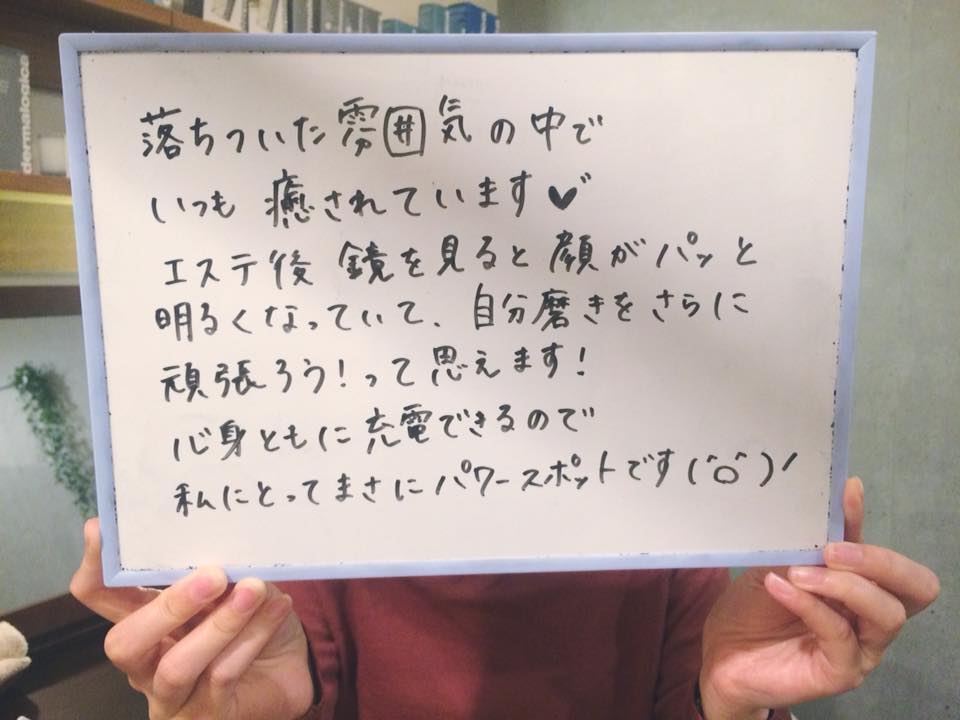 落ちついた雰囲気の中で
いつも癒されています♥
エステ後 鏡を見ると顔がパッと
明るくなっていて、自分磨きをさらに
頑張ろう!って思えます!
心身ともに充電できるので
私にとってまさにパワースポットです(^o^)ノ
dermalogica